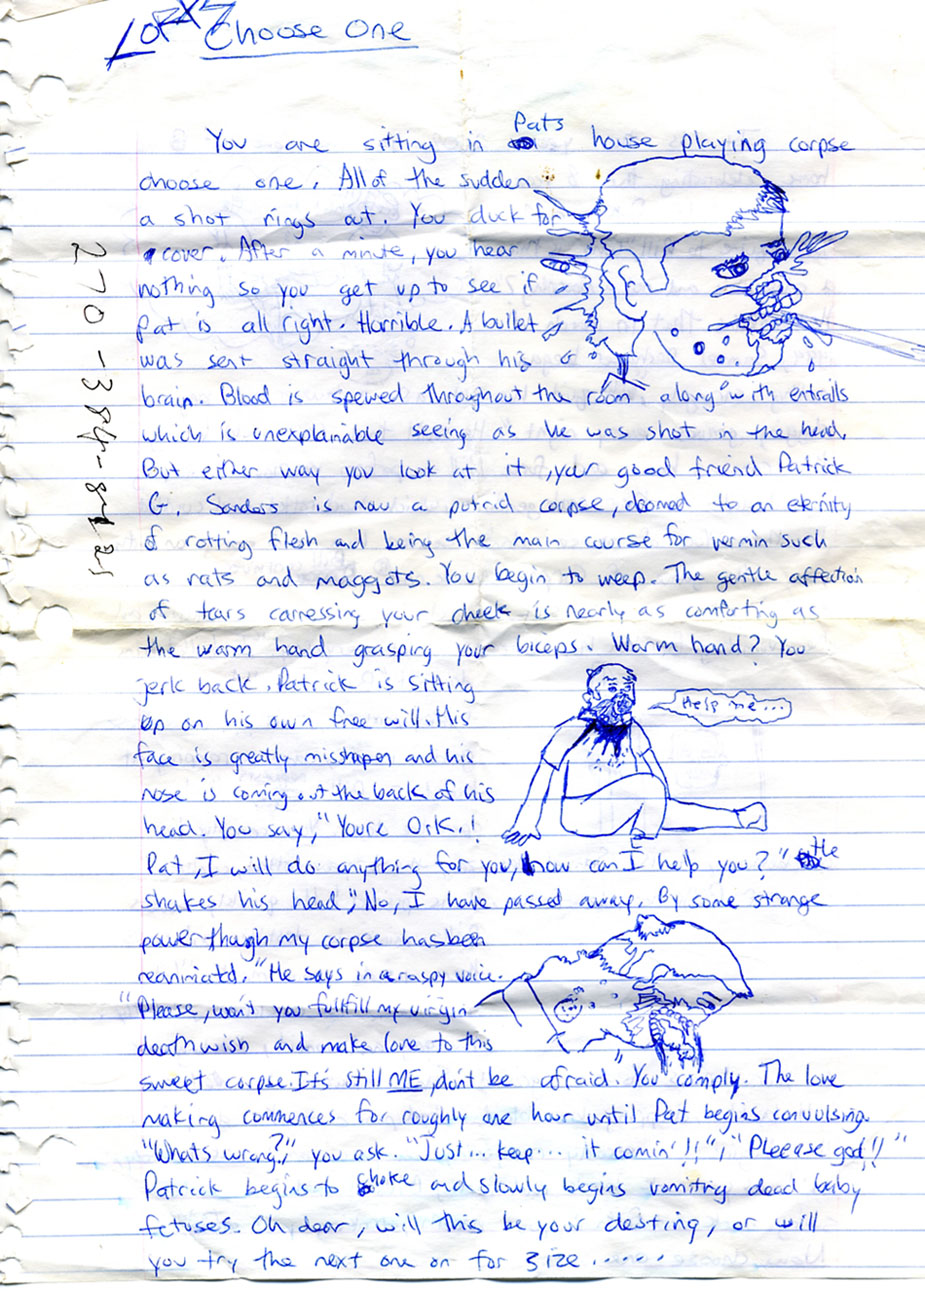 Choose One
You are sitting in Pats house playing corpse
choose one. All of the sudden
a shot rings out. You duck for
cover. After a minute, you hear
nothing so you get up to see if
Pat is all right. Horrible. A bullet
was sent straight through his
brain. Blood is spewed throughout the room along with entralls
which is unexplainable seeing as he was shot in the head.
But either way you look at it, your good friend Patrick
G. Sanders is now a putrid corpse, doomed to an eternity
of rotting flesh and being the main course for vermin such
as rats and maggots. You begin to weep. The gentle affection
of tears carressing your cheek is nearly as comforting as
the warm hand grasping your biceps. Warm hand? You
jerk back. Patrick is sitting
up on his own free will. His
face is greatly misshapen and his
nose is coming out the back of his
head. You say, "Youre O.K.!
Pat, I will do anything for you, how can I help you?" He
shakes his head, "No, I have passed away. By some strange
power though my corpse has been
reanimated." He says in a raspy voice.
"Please, won't you fullfill my virgin
deathwish and make love to this
sweet corpse. It's still ME, don't be afraid. You comply. The love
making commences for roughly one hour until Pat begins convulsing.
"Whats wrong?," you ask. "Just... keep... it comin'!!", "Pleease god!!"
Patrick begins to shake and slowly begins vomiting dead baby
fetuses. Oh dear, will this be your destiny, or will
you try the next one on for size......
Help me...